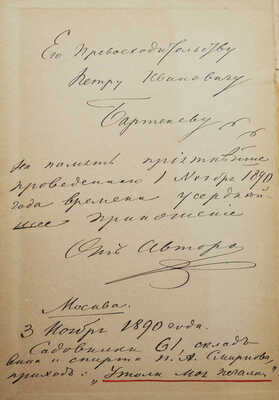 Его Превосходительству
Петру Ивановичу
Бартеневу
На память пріятнѣйше
проведеннаго 1 Ноября 1890
года времени усердной-
шее приношеніе
Отъ Автора
Москва.
3 Ноябрь 1890 года.
Садовники 61, складъ
вина и спирта П. А. Смирнова,
приходъ: „Утоли моя печали“